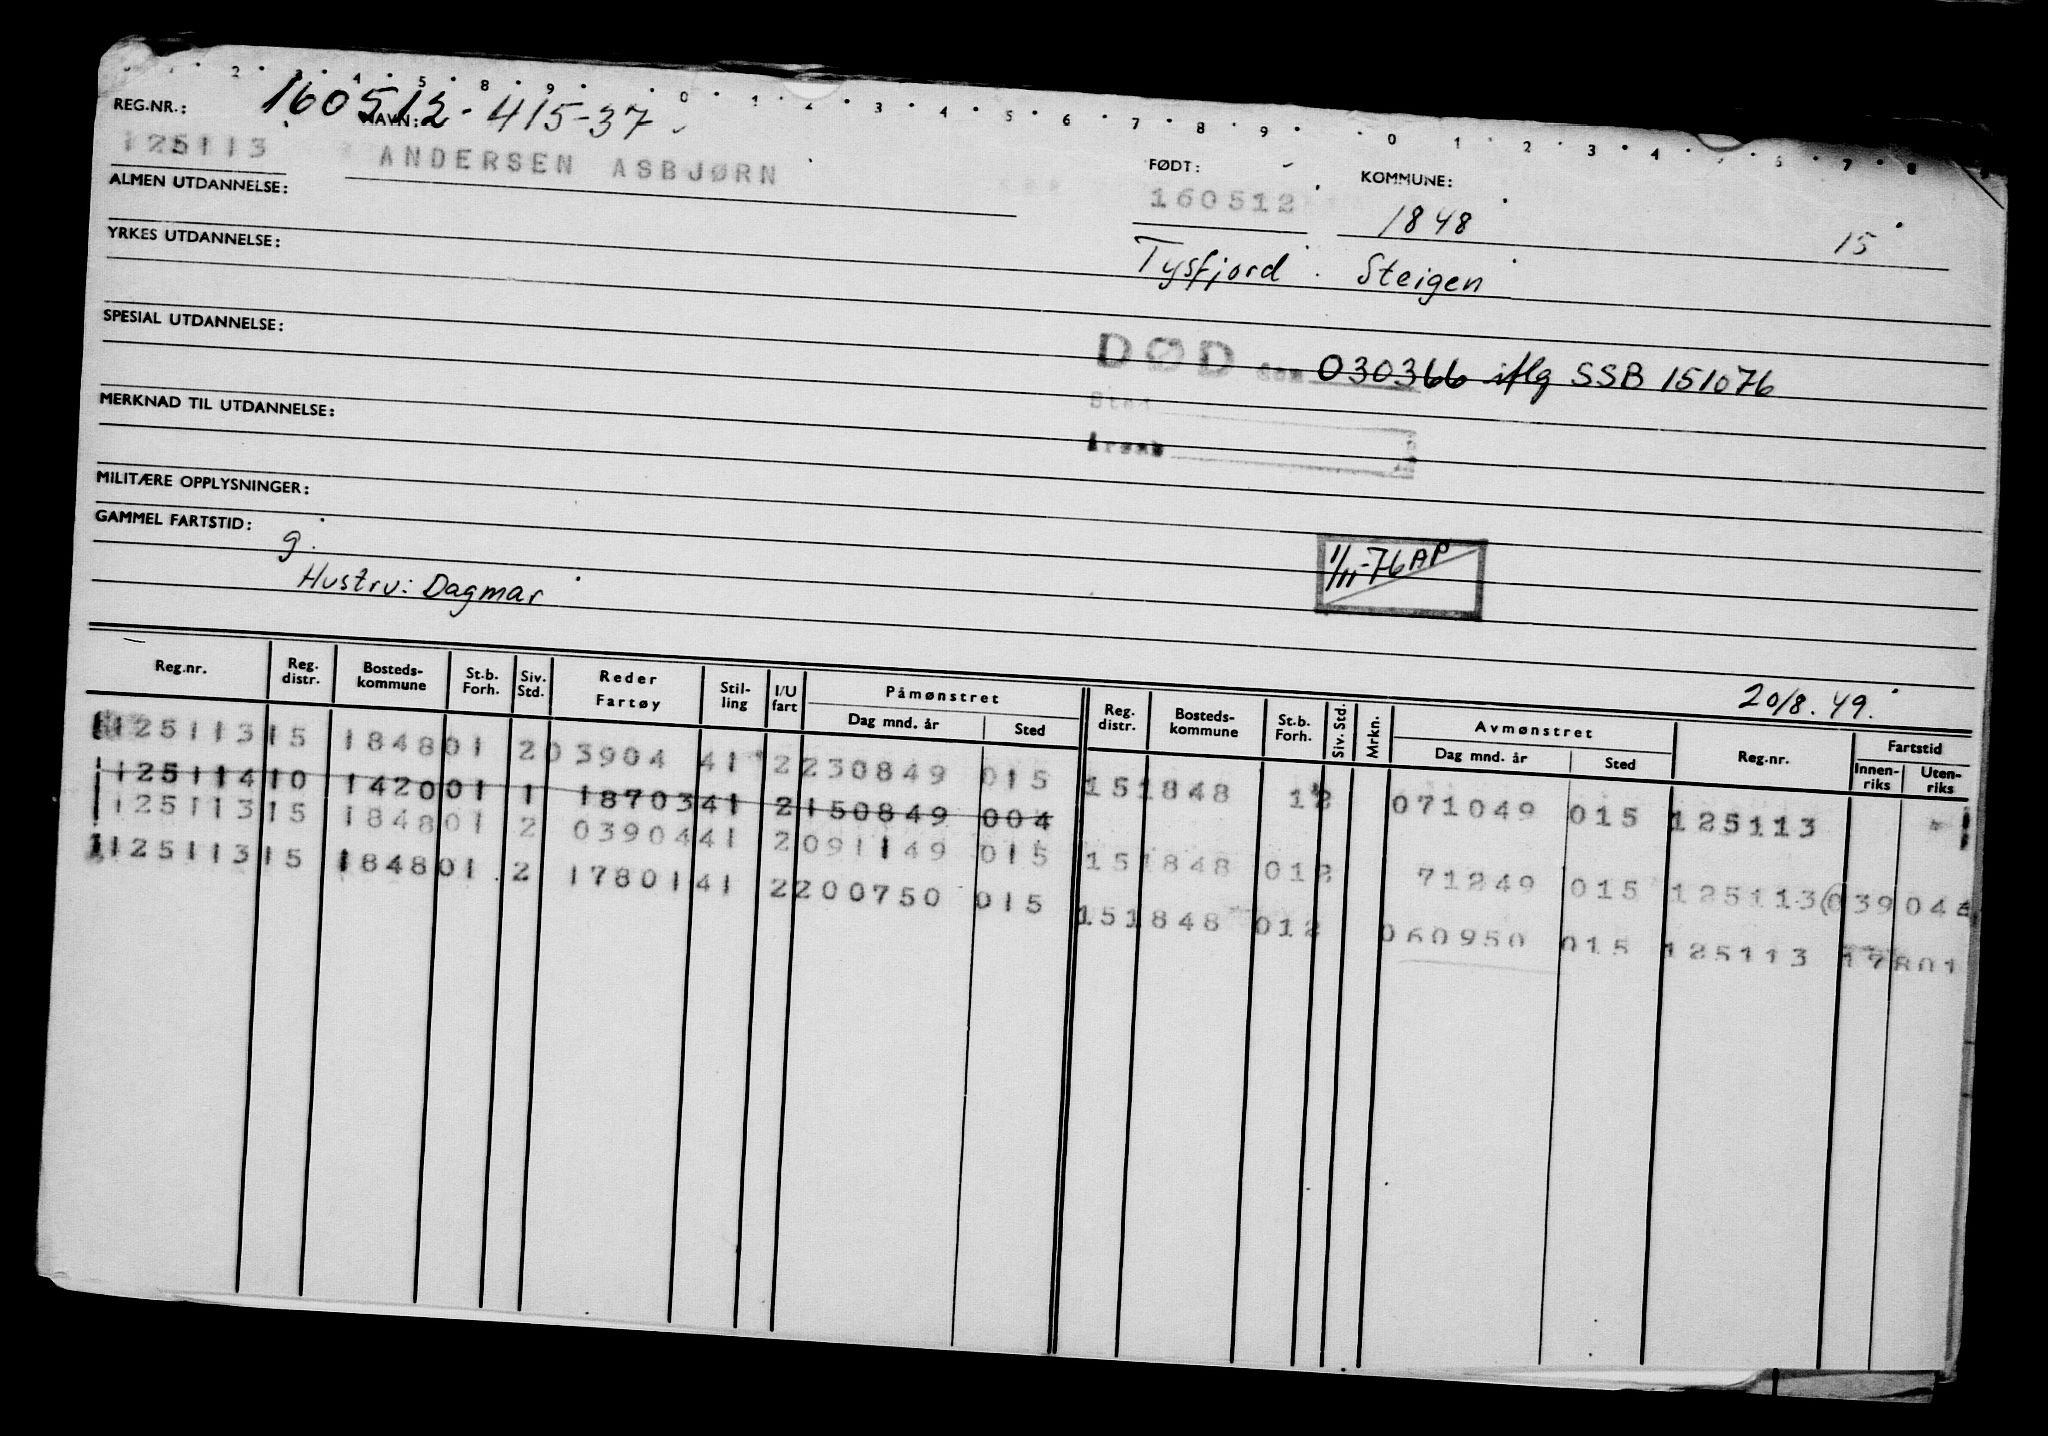 2 3 4 5 8 9 0 1 2 3 4 5 6 7 8 9 0 1 2 3 4 5 6 7 8
REG.NR.: 160512-415-37 NAVN:
125113 ANDERSEN ASBJØRN FØDT: 160512 KOMMUNE: 1848 15
ALMEN UTDANNELSE:
Tysfjord. Steigen
YRKES UTDANNELSE:
SPESIAL UTDANNELSE:
DØD den 030366 iflg SSB 151076
Sted
MERKNAD TIL UTDANNELSE:
Årsak
MILITÆRE OPPLYSNINGER:
GAMMEL FARTSTID:
g.
1/11-76 AP
Hustru: Dagmar
20/8.49.
Reg.nr. Reg. distr. Bosteds-kommune St.b. Forh. Siv. Std. Reder Fartøy Stil-ling I/U fart Påmønstret Dag mnd. år Sted Reg. distr. Bosteds-kommune St.b. Forh. Siv. Std. Mrkn. Avmønstret Dag mnd. år Sted Reg.nr. Fartstid Innen-riks Uten-riks
125113 15 1848 01 2 03904 41 2 230849 015 15 1848 1 2 071049 015 125113
125114 10 1420 01 1 18703 41 2 150849 004
125113 15 1848 01 2 03904 41 2 091149 015 15 1848 01 2 71249 015 125113 (03904
125113 15 1848 01 2 17801 41 2 200750 015 15 1848 01 2 060950 015 125113 17801